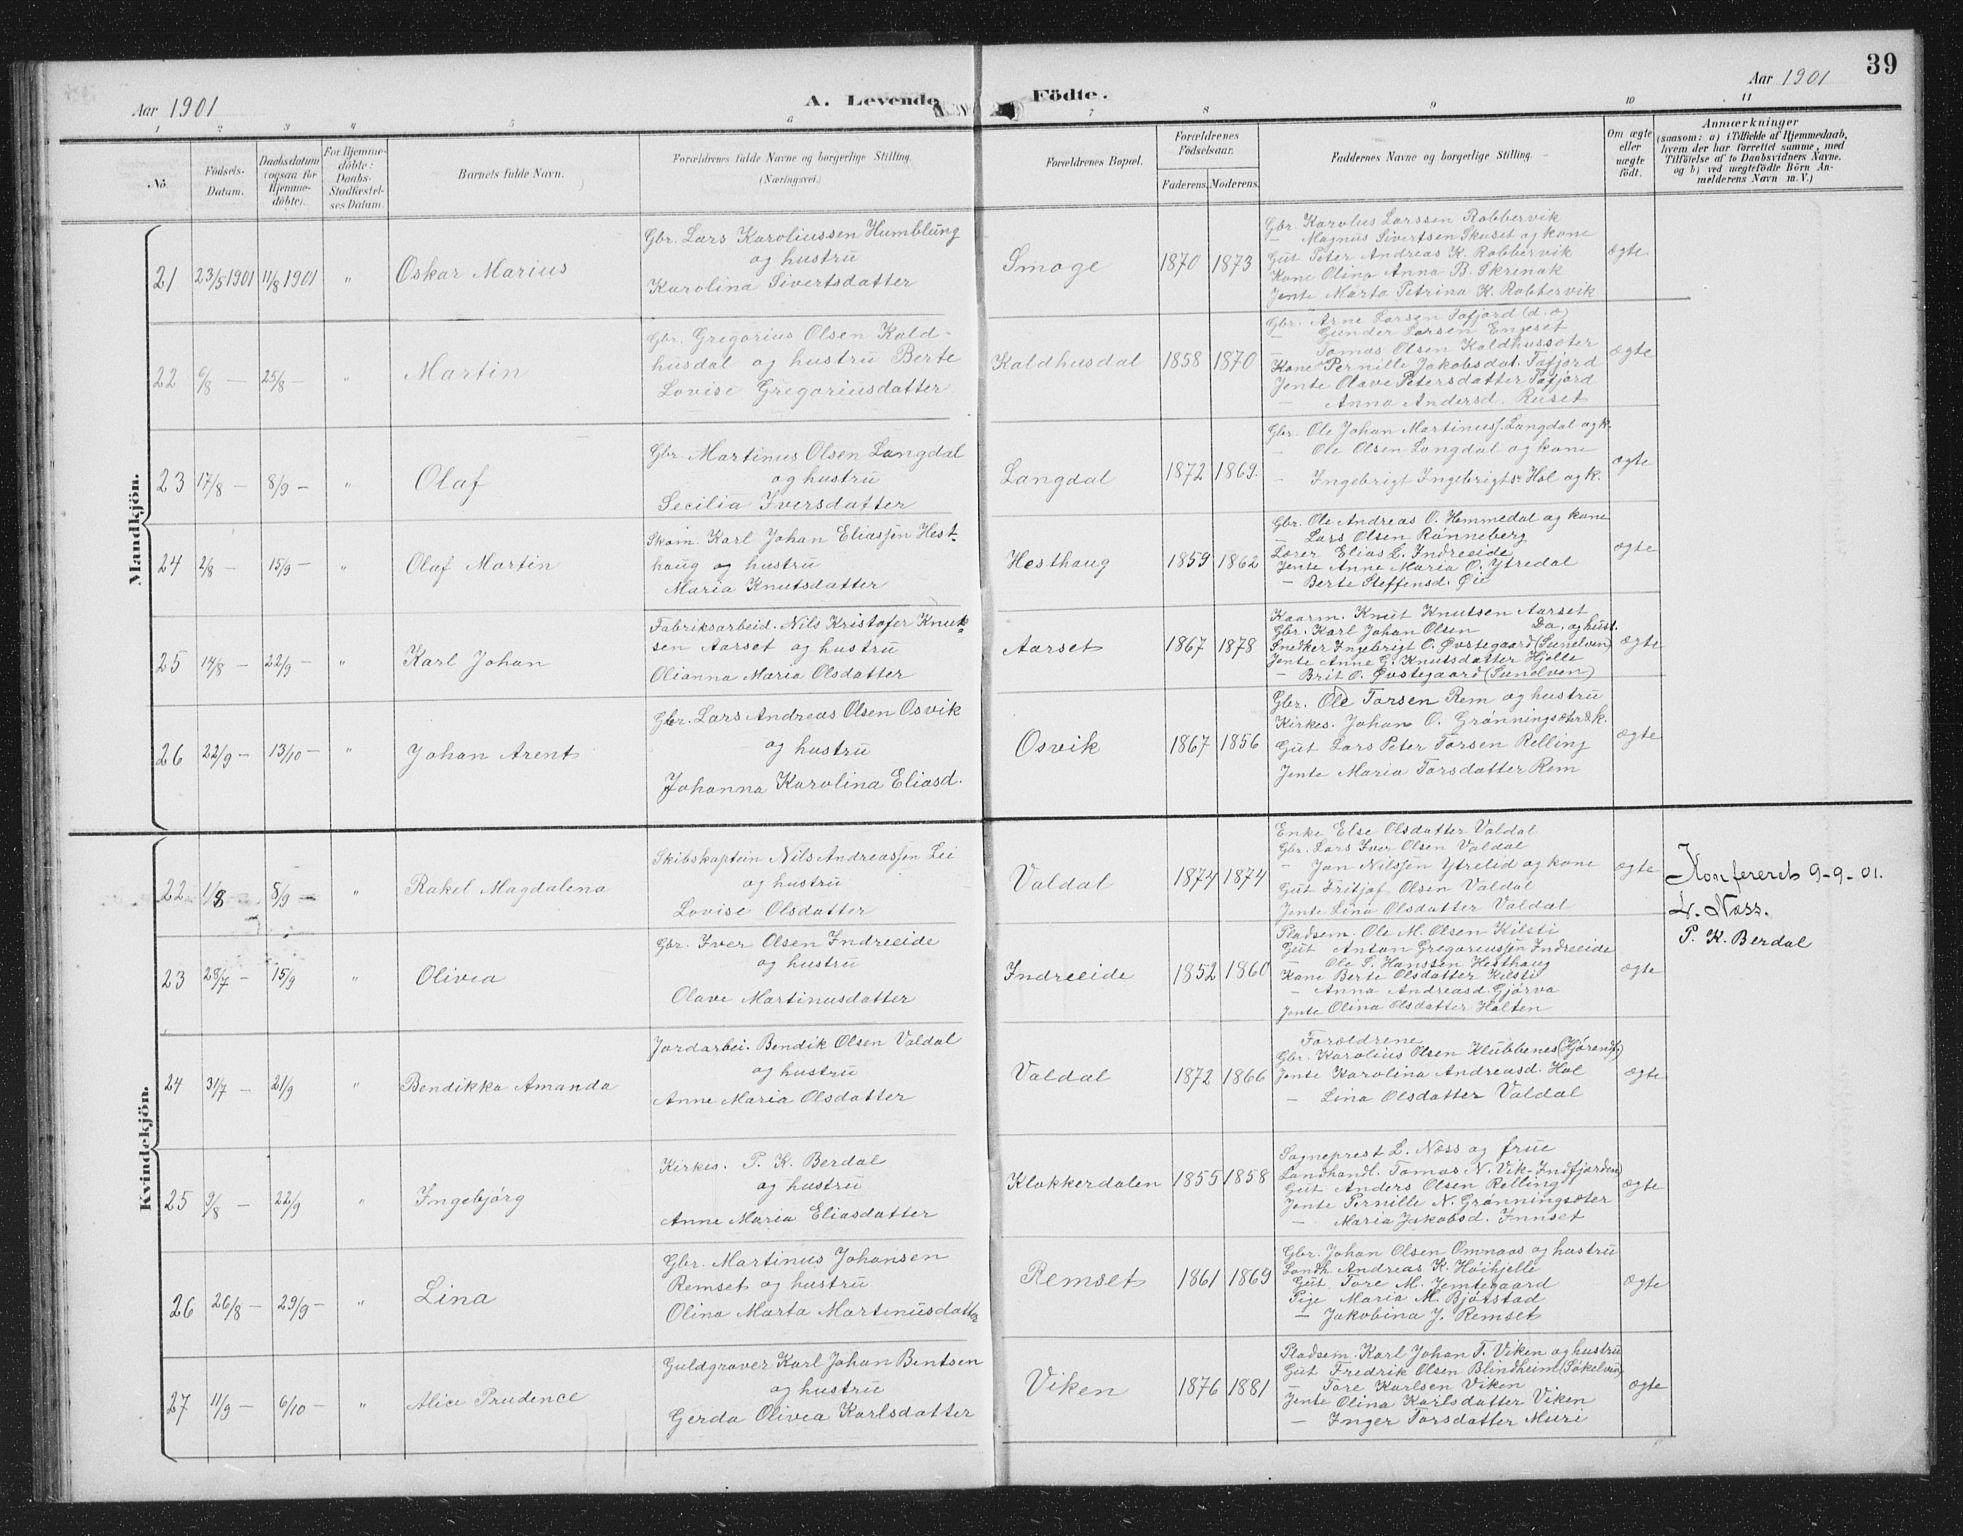 39
Aar 1901
A. Levende
Födte.
Aar 1901
1 2 3 4 5 6 7 8 9 10 11
No.
Födsels-Datum.
Daabsdatum (ogsaa for Hjemme-döbte).
For Hjemme-döbte: Daabs-Stadfæstel-ses Datum.
Barnets fulde Navn.
Forældrenes fulde Navne og borgerlige Stilling.
(Næringsvei.)
Forældrenes Bopæl.
Forældrenes Födselsaar.
Faderens. Moderens.
Faddernes Navne og borgerlige Stilling.
Om ægte eller uægte födt.
Anmærkninger
(saasom: a) i Tilfælde af Hjemmedaab,
hvem der har forrettet samme, med
Tilföielse af to Daabsvidners Navne.
og b) ved uægtefödte Börn An-
melderens Navn m. V.)
Mandkjön.
21 23/5 1901 11/8 1901 " Oskar Marius
Gbr. Lars Karoliussen Humblung
og hustru
Karolina Sivertsdatter
Smoge 1870 1873
Gbr. Karolus Larssen Robbervik
— Magnus Sivertsen Skuset og kone
Gut Peter Andreas K. Robbervik
Kone Olina Anna B. Skrenak
Jente Marta Petrina K. Robbervik
ægte
22 6/8 — 25/8 — " Martin
Gbr. Gregorius Olsen Kald-
husdal og hustru Berte
Lovise Gregoriusdatter
Kaldhusdal 1858 1870
Gbr. Arne Larsen Tafjord (d.o)
— Gunder Larsen Engeset
— Tomas Olsen Kaldhussæter
Kone Pernille Jakobsdat. Tafjord
Jente Olave Petersdatter Tafjord
— Anna Andersd. Ruset
ægte
23 17/8 — 8/9 — " Olaf
Gbr. Martinus Olsen Langdal
og hustru
Secilia Iversdatter
Langdal 1872 1869.
Gbr. Ole Johan Martinuss. Langdal og k.
— Ole Olsen Langdal og kone
— Ingebrigt Ingebrigts. Hol og k.
ægte
24 2/8 — 15/9 — " Olaf Martin
Skom. Karl Johan Eliassen Hest-
haug og hustru
Maria Knutsdatter
Hesthaug 1859 1862
Gbr. Ole Andreas O. Hemmedal og kone
— Lars Olsen Rønneberg
Lærer Elias E. Indreeide
Jente Anne Maria O. Ytredal
— Berte Steffensd. Øie
ægte
25 14/8 — 22/9 — " Karl Johan
Fabriksarbeid. Nils Kristofer Knut-
sen Aarset og hustru
Olianna Maria Olsdatter
Aarset 1867 1878
Kaarm. Knut Knutsen Aarset
Gbr. Karl Johan Olsen Do. og hust.
Snedker Ingebrigt O. Øvstegaard (Sunelven)
Jente Anne G. Knutsdatter Hjelle
— Brit O. Øvstegaard (Sunelven)
ægte
26 22/9 — 13/10 — " Johan Arent
Gbr. Lars Andreas Olsen Osvik
og hustru
Johanna Karolina Eliasd.
Osvik 1867 1856
Gbr. Ole Torsen Rem og hustru
Kirkes. Johan O. Grønningsæter & k.
Gut Lars Peter Torsen Relling
Jente Maria Torsdatter Rem
ægte
Kvindekjön.
22 1/8 8/9 — " Rakel Magdalena
Skibskaptein Nils Andreassen Lei
og hustru
Lovise Olsdatter
Valdal 1874 1874
Enke Else Olsdatter Valdal
Gbr. Lars Iver Olsen Valdal
— Jan Nilssen Ytrelid og kone
Gut Fritjof Olsen Valdal
Jente Lina Olsdatter Valdal
ægte
Konfereret 9-9-01.
L. Næss.
P. K. Berdal
23 28/7 — 15/9 " Olivea
Gbr. Iver Olsen Indreeide
og hustru
Olave Martinusdatter
Indreeide 1852 1860
Pladsem. Ole M. Olsen Kilsti
Gut Anton Gregoriussen Indreeide
— Ole P. Hanssen Hesthaug
Kone Berte Olsdatter Kilsti
— Anna Andreasd. Gjørva
Jente Olina Olsdatter Halten
ægte
24 31/7 — 21/9 " Bendikka Amanda
Jordarbei. Bendik Olsen Valdal
og hustru
Anne Maria Olsdatter
Valdal 1872 1866
Forældrene
Gbr. Karolius Olsen Klubbenes (Hjørendf.)
Jente Karolina Andreasd. Hol
— Lina Olsdatter Valdal
ægte
25 9/8 — 22/9 " Ingebjørg
Kirkes. P. K. Berdal
og hustru
Anne Maria Eliasdatter
Klokkerdalen 1855 1858
Sogneprest L. Næss og frue
Landhandl. Tomas N. Vik-Indfjorden
Gut Anders Olsen Relling
Jente Pernille N. Grønningsæter
— Maria Jakobsd. Innset
ægte
26 26/8 — 29/9 — " Lina
Gbr. Martinus Johansen
Remset og hustru
Olina Marta Martinusdatter
Remset 1861 1869
Gbr. Johan Olsen Omnaas og hustru
Landh. Andreas K. Høihjelle
Gut Tore M. Jemtegaard
Pige Maria M. Bjørstad
— Jakobina J. Remset
ægte
27 11/9 — 6/10 — " Alice Prudence
Guldgraver Karl Johan Bentsen
og hustru
Gerda Olivea Karlsdatter
Viken 1876 1881
Pladsem. Karl Johan T. Viken og hustru
Gut Fredrik Olsen Blindheim (Søkelven)
— Tore Karlsen Viken
Jente Olina Karlsdatter Viken
— Inger Torsdatter Muri
ægte